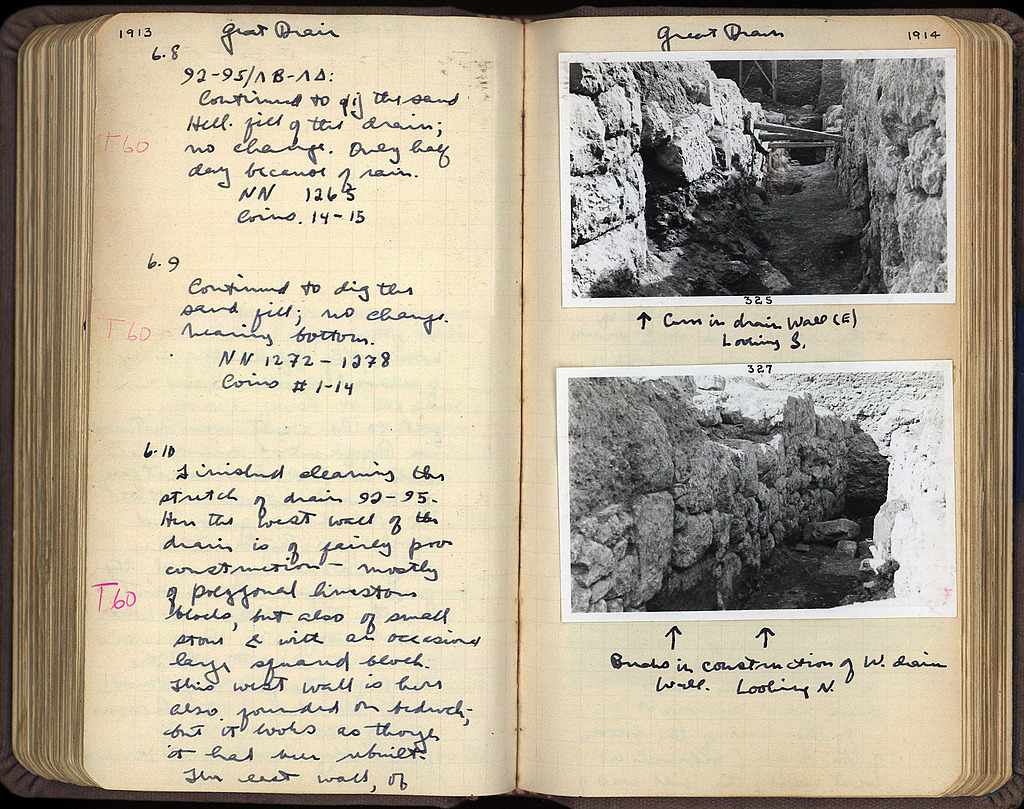 1913
Great Drain
6.8
92-95/ΛB-ΛΔ:
Continued to dig the sand
Hell. fill of the drain;
T60
no change. Only half
day because of rain.
NN 1265
Coins. 14-15
6.9
Continued to dig the
sand fill; no change.
T60
nearing bottom.
NN 1272-1278
Coins #1-14
6.10
Finished cleaning the
stretch of drain 92-95.
Here the west wall of the
drain is of fairly poor
construction - mostly
T60
of polygonal limestone
blocks, but also of small
stone & with an occasional
large squared block.
This west wall is here
also founded on bedrock,
but it looks as though
it had been rebuilt.
The east wall, of
Great Drain
1914
325
↑ Curve in drain Wall (E)
Looking S.
327
↑ ↑
Breaks in construction of W. drain
Wall. Looking N.